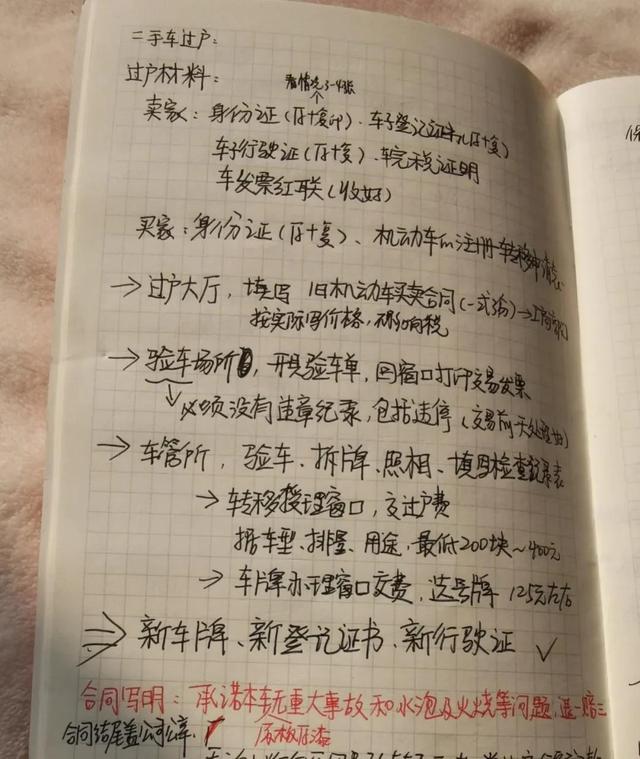 二手车过户:
过户材料:
看情况3-4张
卖家: 身份证(原+复印)、车子登记证书(原+复)
车子行驶证(原+复)、车完税证明
车发票红联(收好)
买家: 身份证(原+复)、机动车的注册转移申请
→过户大厅, 填写 旧机动车买卖合同(一式3份)→
按实际写价格, 影响税
→验车场所, 开具验车单, 回窗口打印交易发票
必须没有违章纪录, 包括违停(交易前一天处理好)
→车管所, 验车、拆牌、照相、填写检查记录表
→转移受理窗口, 交过户费
据车型、排量、用途, 最低200块~400元
→车牌办理窗口交费, 选号牌 125元左右
新车牌、新登记证书、新行驶证 ✓
合同写明: 承诺本车无重大事故和水泡及火烧等问题, 退一赔三
合同结尾盖公司公章. 原板原漆